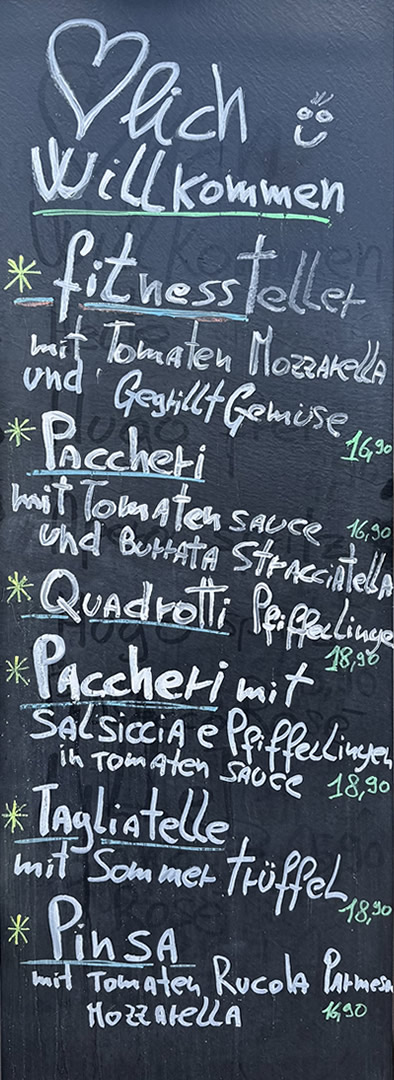 ♡lich
Willkommen
* fitnessteller
mit Tomaten Mozzarella
und Gegrillt Gemüse
16,90
* Paccheri
mit Tomaten sauce 16,90
und Burrata Stracciatella
* Quadrotti Pfifferlinge
18,90
* Paccheri mit
Salsiccia e Pfifferlingen
in Tomaten sauce 18,90
* Tagliatelle
mit Sommer trüffel
18,90
* Pinsa
mit Tomaten Rucola Parmesa
Mozzarella 16,90